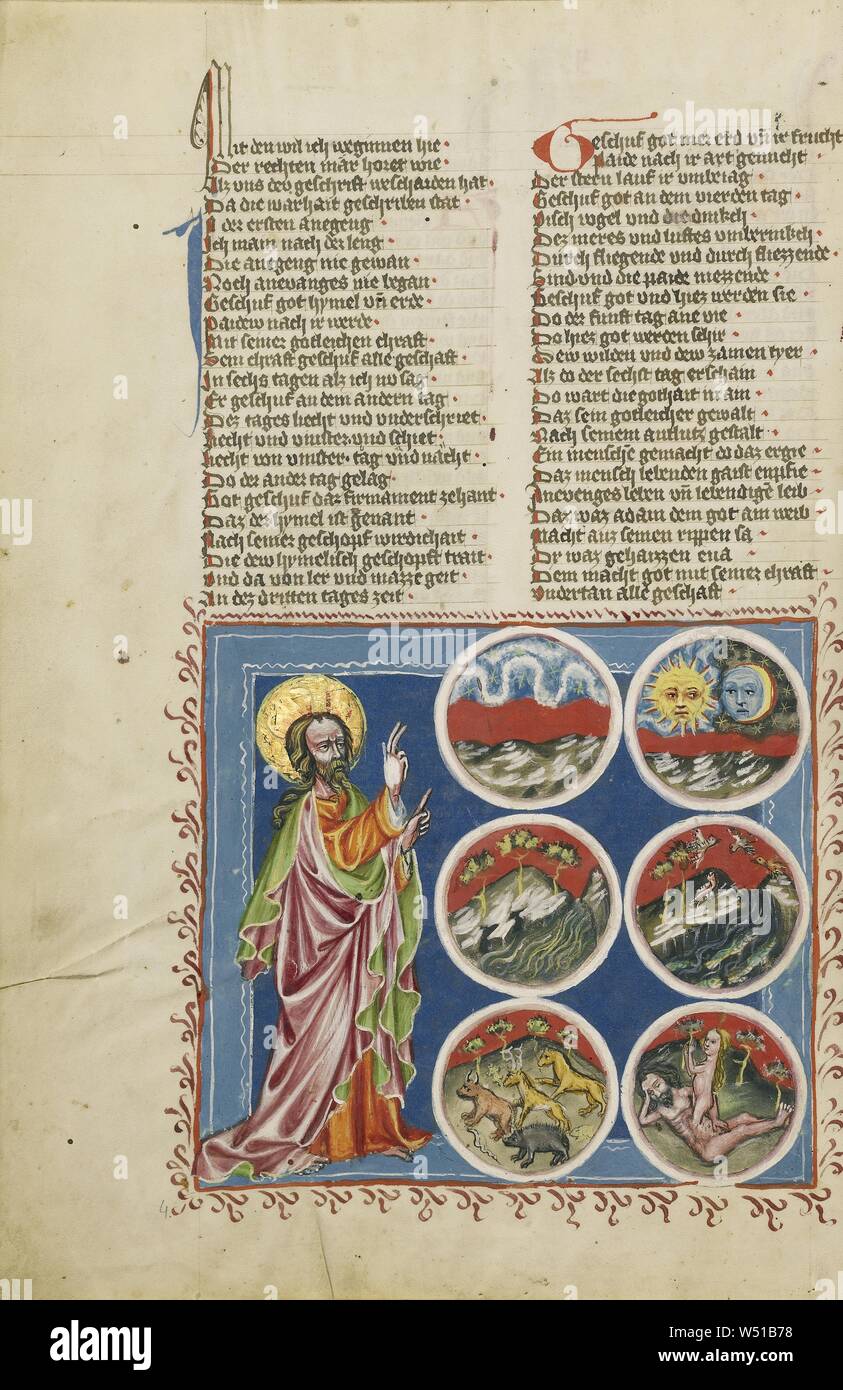 Mit den wil ich weginnen hie ·
Der rechten mär horet wie ·
Alz vns dew geschrift wescharden hat ·
Da die warhait geschriben stat ·
In der ersten anegeng ·
Ich main nach der leng ·
Die anegeng nie gewan ·
Noch anevanges nie began ·
Geschuf got hymel vñ erde ·
Paidew nach ir werde ·
Mit seiner gotleichen chraft ·
Sein chraft geschuf alle geschaft ·
In sechs tagen alz ich nv sag ·
Er geschuf an dem andern tag ·
Dez tages liecht vnd vnderschriet ·
liecht vnd vinster vnd schiet ·
liecht von vinster · tag vnd nächt ·
Do der ander tag gelag ·
Got geschuf daz firmament zehant ·
Daz der hymel ist genant ·
Nach seiner geschopf wirdichait ·
Die dew hymelisch geschopft trait ·
Vnd da von ler vnd mazze geit ·
An dez dritten tages zeit ·
Geschuf got mer erd vñ ir frucht
Paide nach ir art genucht ·
Der stern lauf ir vmbeiag ·
Geschuf got an dem vierden tag ·
Visch vogel vnd die dinkch ·
Dez meres vnd luftes vmberinkch ·
Durch fliegende vnd durch fliezzende ·
Sind vnd die paide niezzende ·
Geschuf got vnd hiez werden sie ·
Do der funft tag ane vie ·
Do hiez got werden schir ·
Dew wilden vnd dew zamen tyer ·
Alz do der sechst tag erschain ·
Do wart die gothait in ain ·
Daz sein gotleicher gewalt ·
Nach seinem antlutz gestalt ·
Ein mensche gemacht do daz ergie ·
Daz mensch lebenden gaist enpfie ·
Anevenges leben vñ lebendigē leib ·
Daz waz adam dem got ain weib ·
Macht auz seinen rippen sa ·
Dy waz gehaizzen eua ·
Dem macht got mit seiner chraft ·
Vndertan alle geschaft ·
4
alamy
Image ID: W51B78
www.alamy.com